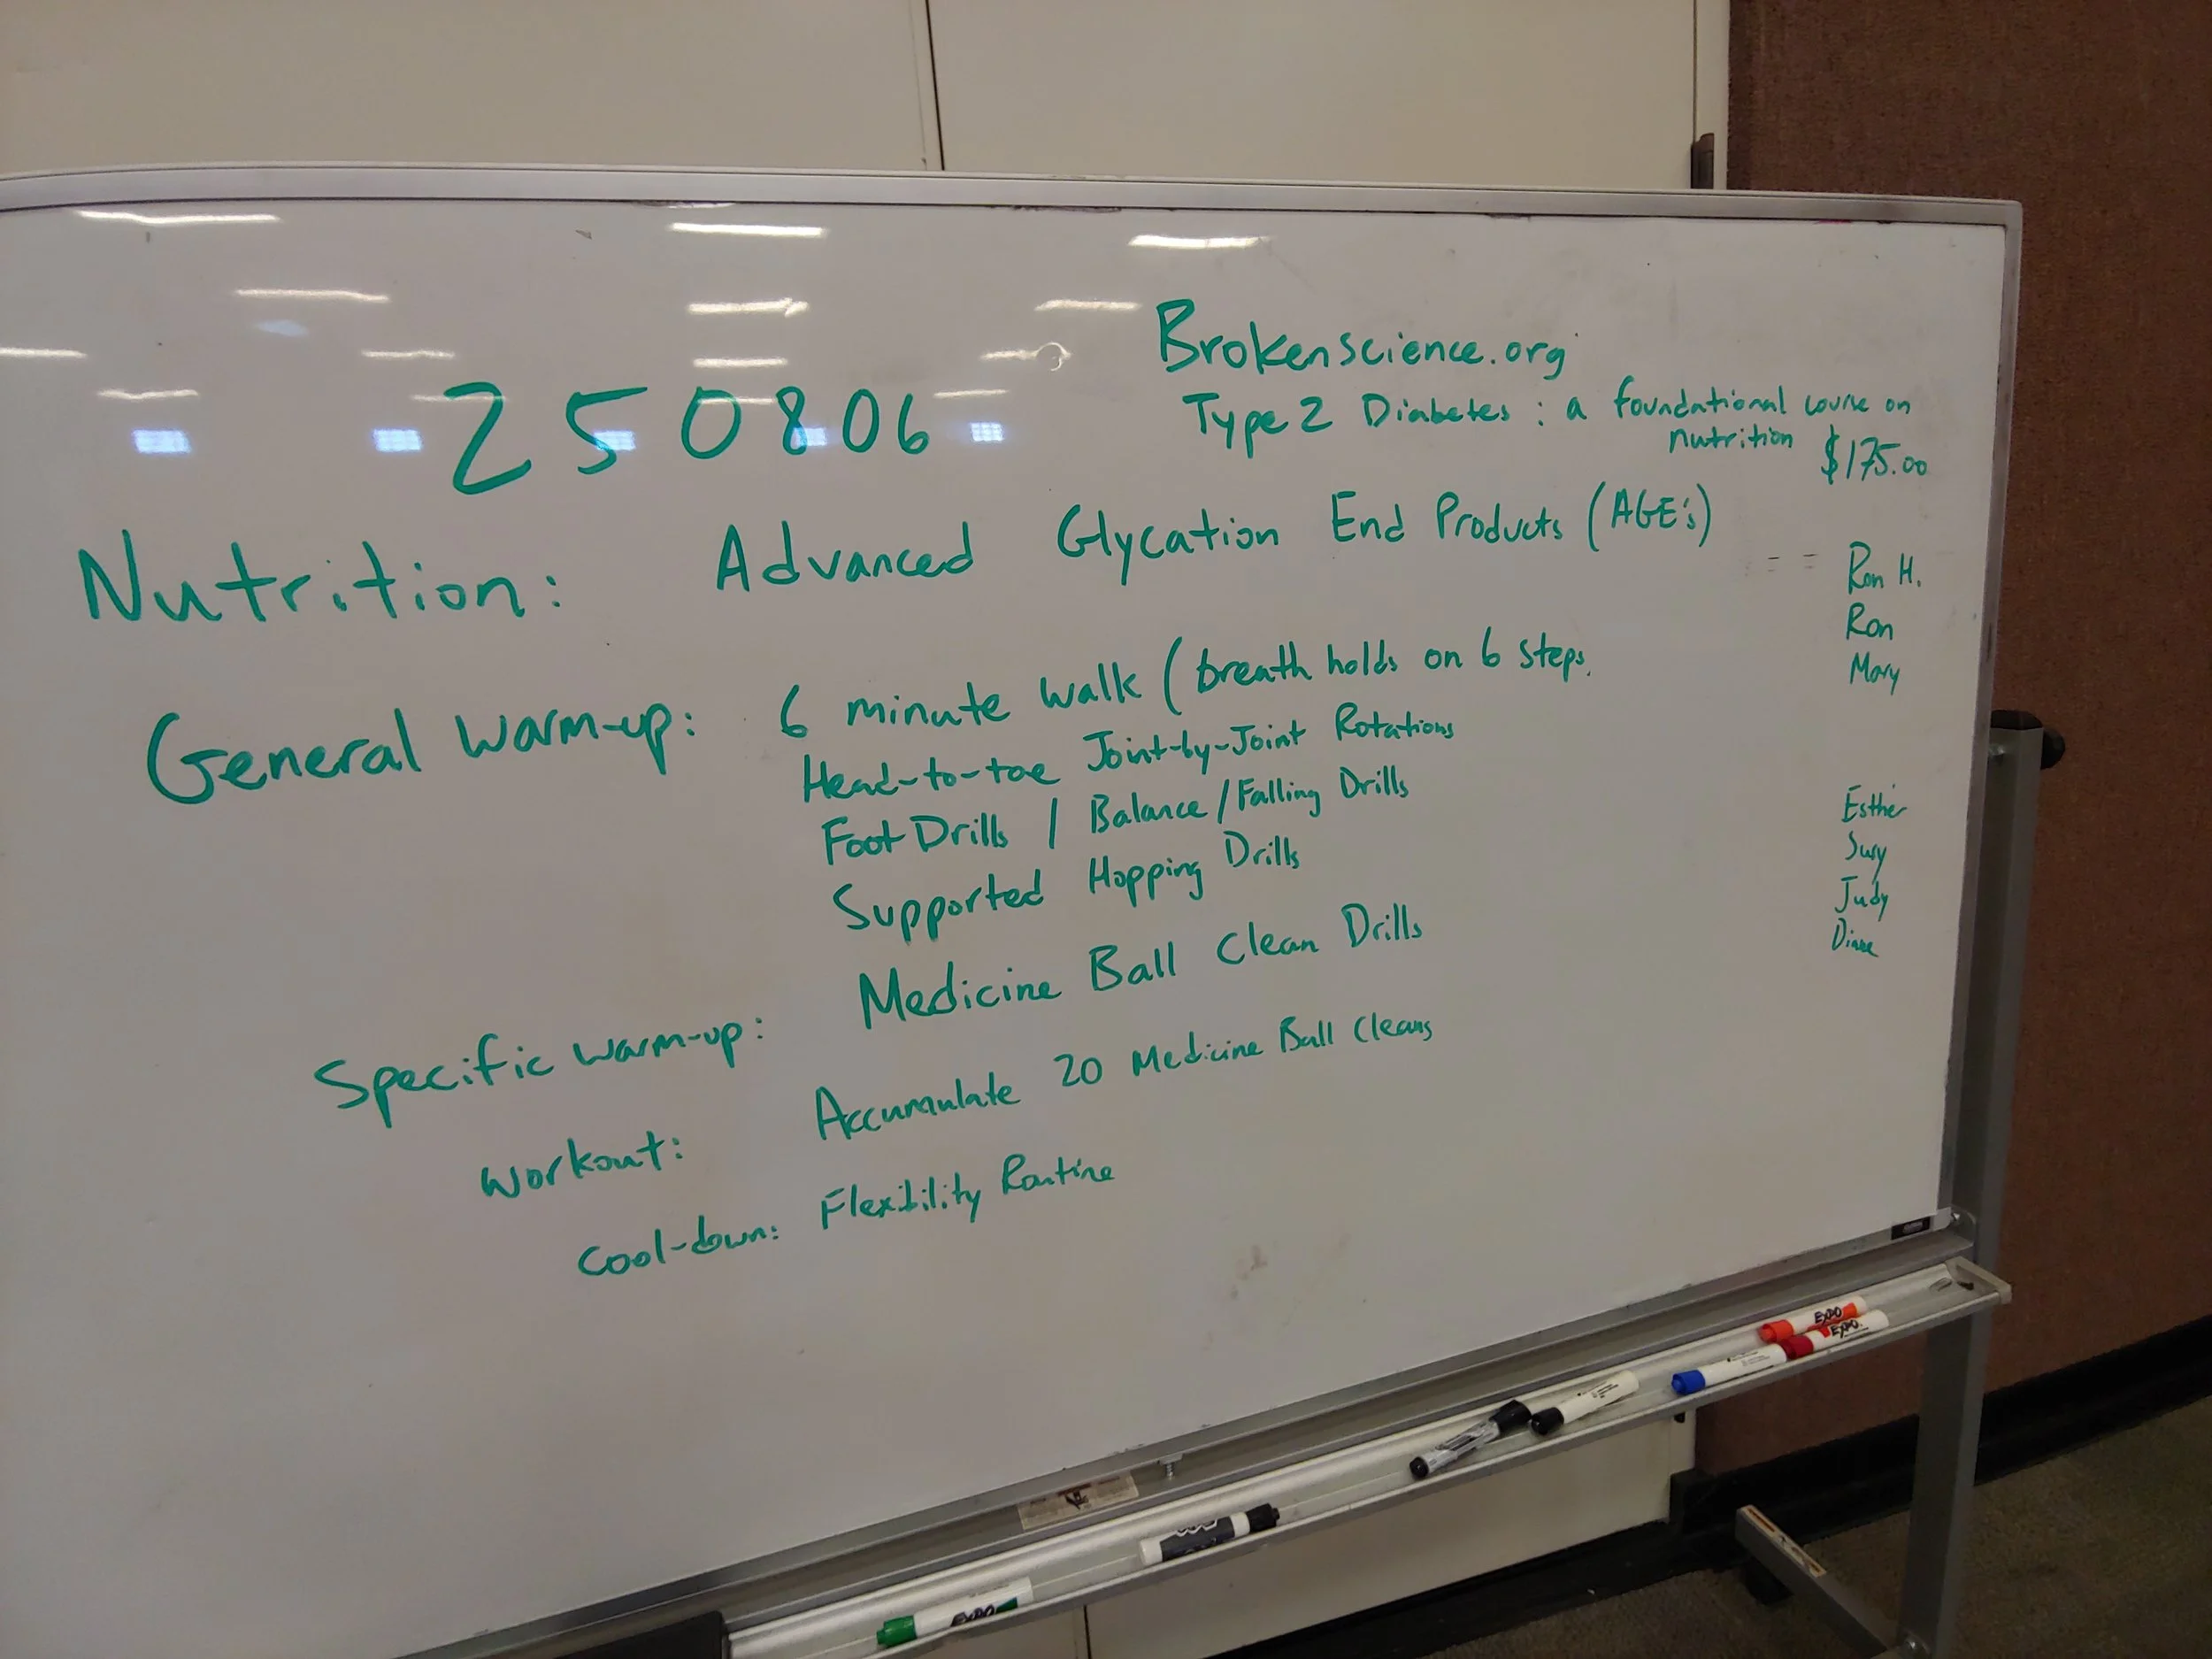 Brokenscience.org
250806
Type 2 Diabetes : a foundational course on
nutrition $175.00
Nutrition: Advanced Glycation End Products (AGE's)
General warm-up: 6 minute walk (breath holds on 6 steps.
Head-to-toe Joint-by-Joint Rotations
Foot Drills / Balance/Falling Drills
Supported Hopping Drills
Specific warm-up: Medicine Ball Clean Drills
Workout: Accumulate 20 Medicine Ball Cleans
Cool-down: Flexibility Routine
= = Ron H.
Ron
Mary
Esther
Judy
Diane
EXPO
EXPO
EXPO